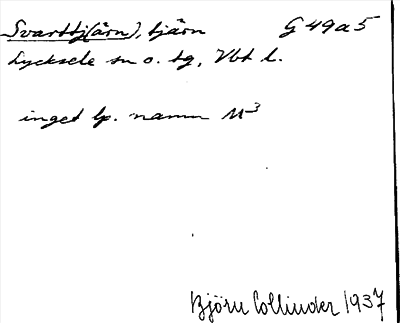 Svarttj(ärn), tjärn G 49a5
Lycksele sn o. tg, Vbt l.
inget lp. namn M³
Björn Collinder 1937